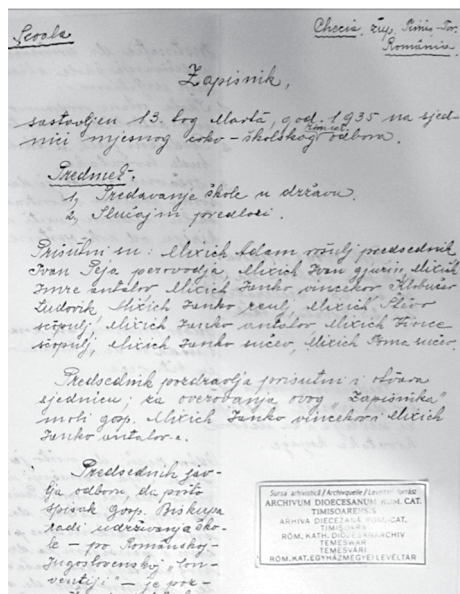 Scoala
Checia, žup. Timiș-Tor.
România.
Zapisnik,
sastavljen 13. tog Marta, god. 1935 na sjed-
nici mjesnog crko-školskog rimkat. odbora.
Predmet.
1, Predavanje škole u državu.
2, Slučajni predlozi.
Prisutni su: Mixich Adam predsednik
Ivan Peja perovodja, Mixich Ivan gjurin, Mixich
Imre antalov Mixich Janko vincekov Klobučar
Ludovik Mixich Janko Mixich
Mixich Janko antalov Mixich Vince
Mixich Janko sučev, Mixich Toma sučev.
Predsednik pozdravlja prisutni i otvara
sjednicu; za overovanja ovog „Zapisnika"
moli gosp. Mixich Janko vincekov i Mixich
Janko antalov-a.
Predsednik jav-
lja odboru, da pošto
spisak gosp. Biskupa
radi udržavanja ško-
le – po Românskoj-
Jugoslovenskoj „Con-
ventiji" – je
Sursa arhivistică / Archivquelle / Levéltári forrás:
ARCHIVUM DIOECESANUM ROM. CAT.
TIMISOARENSIS
ARHIVA DIECEZANĂ ROM.-CAT.
TIMIȘOARA
RÖM. KATH. DIÖZESANARCHIV
TEMESWAR
TEMESVÁRI
RÓM. KAT. EGYHÁZMEGYEI LEVÉLTÁR